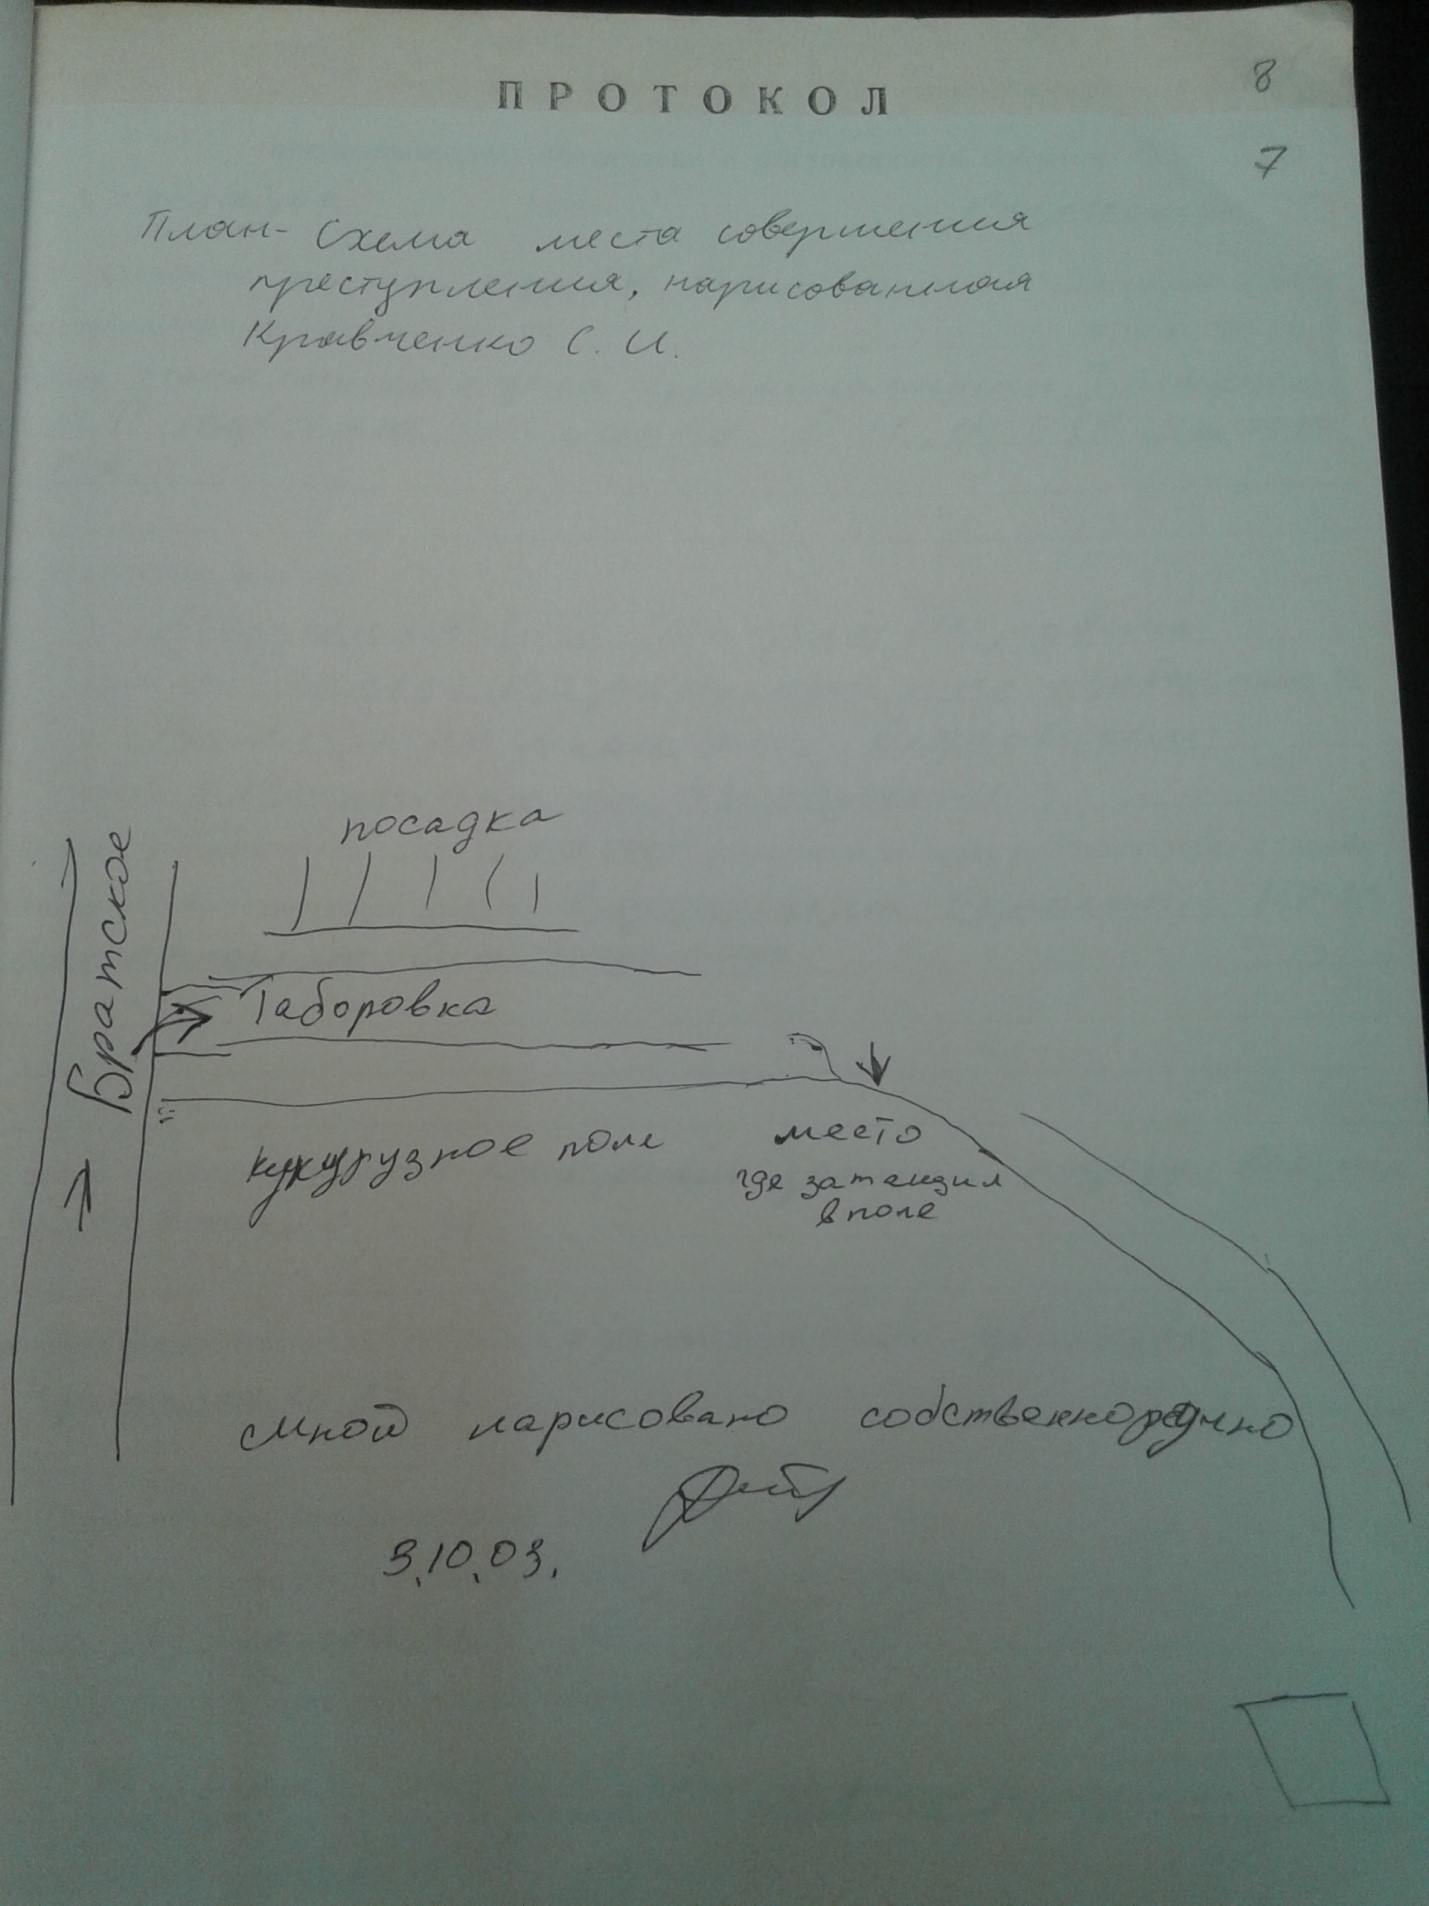 ПРОТОКОЛ
8
7
План-схема места совершения
преступления, нарисованная
Кравченко С. И.
посадка
Братское
Таборовка
кукурузное поле
место
где затащил
в поле
Мной нарисовано собственноручно
3.10.03.